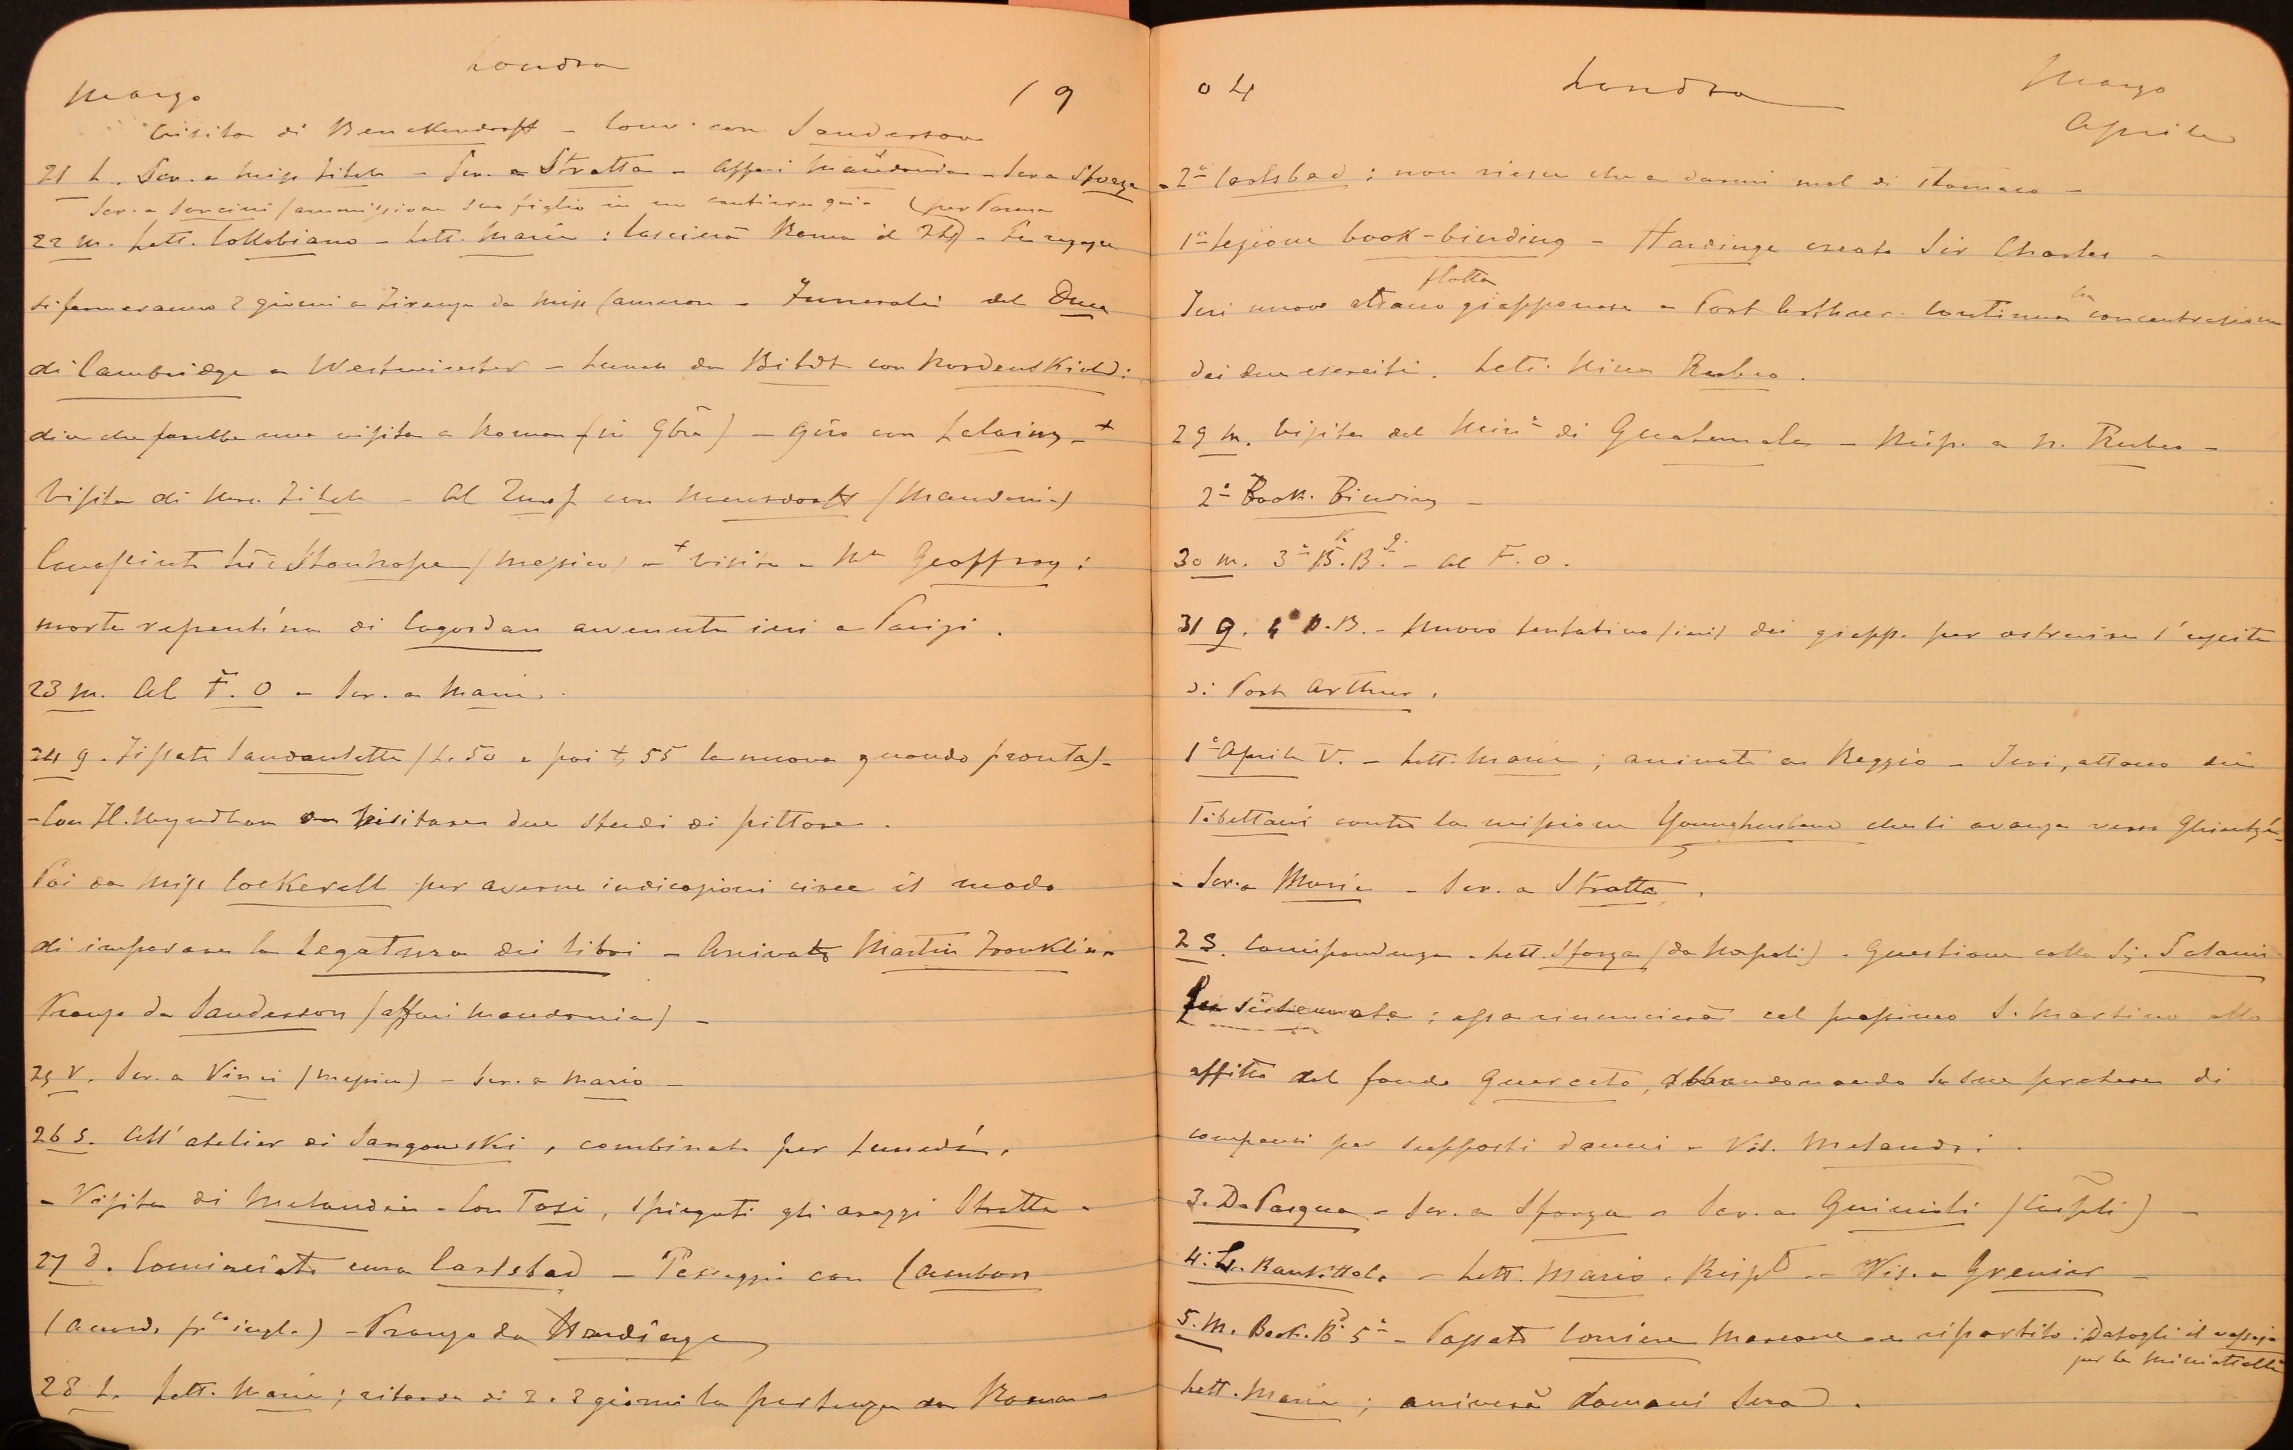 Londra
Marzo 19
Visita di Benckendorff – Conv. con Sanderson
21 L. Scr. a Miss Titel – Scr. a Stratta – Affari Macedonia – Scr. a Sforza
Scr. a Soncini (ammissione suo figlio in un cantiere qui (per Parma
22 M. Lett. Collobiano – Lett. Maria : lascierà Roma il 24 – Le ragazze
si fermeranno 2 giorni a Firenze da Miss – Funerali del Duca
di Cambridge a Westminster – Lunch da Bildt con Nordenskiold :
dice che farebbe una visita a Roma (in 9bre) – Giro con Lelaing – +
Visita di – Al Turf con Mensdorff (Macedonia)
Conosciuto Stanhope (Messico) – + visita a Mr Geoffray :
morte repentina di Cogordan avvenuta ieri a Parigi .
23 M. Al F. O – Scr. a Maria .
24 G. Fissato Landauletta (L. 50 e poi £ 55 la nuova quando pronta) –
– Con H. Wyndham a visitare due studi di pittore .
Poi da Miss Cockerell per averne indicazioni circa il modo
di imparare la legatura dei libri – Arrivato Martin Franklin –
Pranzo da Sanderson (affari Macedonia) –
25 V. Scr. a Vinci (Messico) – Scr. a Mario –
26 S. All'atelier di , combinato per Lunedì .
– Visita di Melandri – Con Tosi , spiegati gli arazzi Stratta –
27 D. Cominciata cura Carlsbad – Passeggio con Cambon
(Accordo fr.co ingl.) – Pranzo da Hardinge
28 L. Lett. Maria ; ritarda di 2 o 3 giorni la partenza da Roma –
04 Londra Marzo
Aprile
– 2° Carlsbad ; non riesce che a darmi mal di stomaco –
1a Lezione book-binding – Hardinge creato Sir Charles –
flotta
Ieri nuovo attacco giapponese a Port Arthur. Continua la concentrazione
dei due eserciti . Lett. Nina Rasbeo .
29 M. Visita del Min° di Guatemala – Risp. a N. –
2a Book. Binding –
30 M. 3a Bk. Bg. – Al F. O .
31 G. 4a B.B. – Nuovo tentativo (ieri) dei giapp. per ostruire l'uscita
di Port Arthur .
1° Aprile V. – Lett. Maria ; arrivata a Reggio – Ieri, attacco dei
Tibettani contro la missione Younghusband che si avanza verso
– Scr. a Maria – Scr. a Stratta .
2 S. Corrispondenza . Lett. Sforza (da Napoli) . Questione colla Sig.
; essa rinuncierà col prossimo S. Martino allo
affitto del fondo Querceto , abbandonando le sue pretese di
compensi per supposti danni – Vis. Melandri .
3. D. Pasqua – Scr. a Sforza – Scr. a –
4. L. Bank. Hol. – Lett. Mario . Rispto – Vis. a Grenier –
5. M. Book. Bd 5a – Passato corriere Marcone e ripartito ; Datogli il vassoio
per la Ministrella
Lett. Maria ; arriverà domani sera .